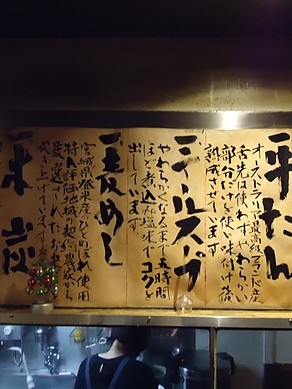 牛たん
オーストラリア最高級ブランド産
舌先は使わずやわらかい
部分だけを使い味付け後
熟成させています。
テールスープ
やわらかくなるまで五時間
ほど煮込み塩味でコクを
出しています。
麦めし
宮城県登米産ひとめぼれ使用
特A評価地域の契約農家から
炭